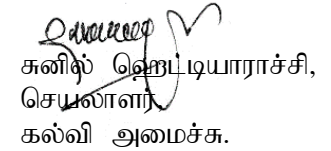 சுனில் ஹெட்டியாராச்சி,
செயலாளர்.
கல்வி அமைச்சு.